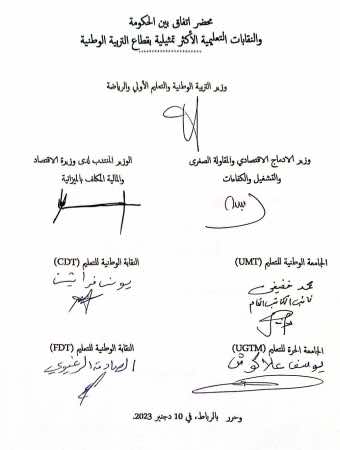 محضر اتفاق بين الحكومة
والنقابات التعليمية الأكثر تمثيلية بقطاع التربية الوطنية
وزير التربية الوطنية والتعليم الأولي والرياضة
وزير الادماج الاقتصادي والمقاولة الصغرى
والتشغيل والكفاءات
الوزير المنتدب لدى وزيرة الاقتصاد
والمالية المكلف بالميزانية
الجامعة الوطنية للتعليم (UMT)
محمد خفيفي
نائب الكاتب العام
النقابة الوطنية للتعليم (CDT)
يونس فيراشين
الجامعة الحرة للتعليم (UGTM)
يوسف علاكوش
النقابة الوطنية للتعليم (FDT)
الصادق الرغيوي
وحرر بالرباط، في 10 دجنبر 2023.